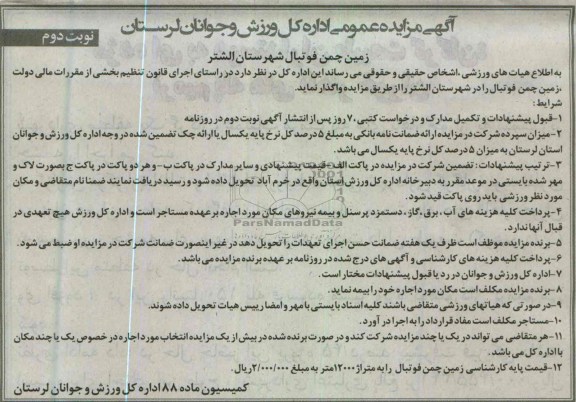 آگهی مزایده عمومی اداره کل ورزش و جوانان لرستان
نوبت دوم
زمین چمن فوتبال شهرستان الشتر
به اطلاع هیات های ورزشی، اشخاص حقیقی و حقوقی می رساند این اداره کل در نظر دارد در راستای اجرای قانون تنظیم بخشی از مقررات مالی دولت
،زمین چمن فوتبال را در شهرستان الشتر را از طریق مزایده واگذار نماید.
شرایط:
۱-قبول پیشنهادات و تکمیل مدارک و درخواست کتبی ۷۰ روز پس از انتشار آگهی نوبت دوم در روزنامه
۲-میزان سپرده شرکت در مزایده ارائه ضمانت نامه بانکی به مبلغ ۵ درصد کل نرخ پایه یکسال یا ارائه چک تضمین شده در وجه اداره کل ورزش و جوانان
استان لرستان به میزان ۵ درصد کل نرخ پایه یکسال می باشد.
۳-ترتیب پیشنهادات: تضمین شرکت در مزایده در پاکت الف-قیمت پیشنهادی و سایر مدارک در پاکت ب-و هر دو پاکت در پاکت ج بصورت لاک و
مهر شده بایستی در موعد مقرر به دبیرخانه اداره کل ورزش استان واقع در خرم آباد تحویل داده شود و رسید دریافت نمایند ضمنا نام متقاضی و مکان
مورد نظر ورزشی باید روی پاکت قید شود.
۴-پرداخت کلیه هزینه های آب ،برق ،گاز ، دستمزد پرسنل و بیمه نیروهای مکان مورد اجاره بر عهده مستاجر است و اداره کل ورزش هیچ تعهدی در
قبال آنها ندارد.
۵-برنده مزایده موظف است ظرف یک هفته ضمانت حسن اجرای تعهدات را تحویل دهد در غیر اینصورت ضمانت شرکت در مزایده او ضبط می شود.
۶-پرداخت کلیه هزینه های کارشناسی و آگهی های درج شده در روزنامه بر عهده برنده مزایده می باشد.
۷-اداره کل ورزش و جوانان در رد یا قبول پیشنهادات مختار است.
۸-برنده مزایده مکلف است مکان مورد اجاره خود را بیمه نماید.
۹-در صورتی که هیاتهای ورزشی متقاضی باشند کلیه اسناد بایستی با مهر و امضا رییس هیات تحویل داده شوند.
۱۰-مستاجر مکلف است مفاد قرارداد را به اجرا در آورد.
۱۱-هر متقاضی می تواند در یک یا چند مزایده شرکت کند و در صورت برنده شده در بیش از یک مزایده انتخاب مورد اجاره در خصوص یک یا چند مکان
با اداره کل می باشد.
۱۲-قیمت پایه کارشناسی زمین چمن فوتبال را به متراژ ۱۲۰۰۰متر به مبلغ ۲/۰۰۰/۰۰۰ریال.
کمیسیون ماده ۸۸ اداره کل ورزش و جوانان لرستان
ParsNamadData